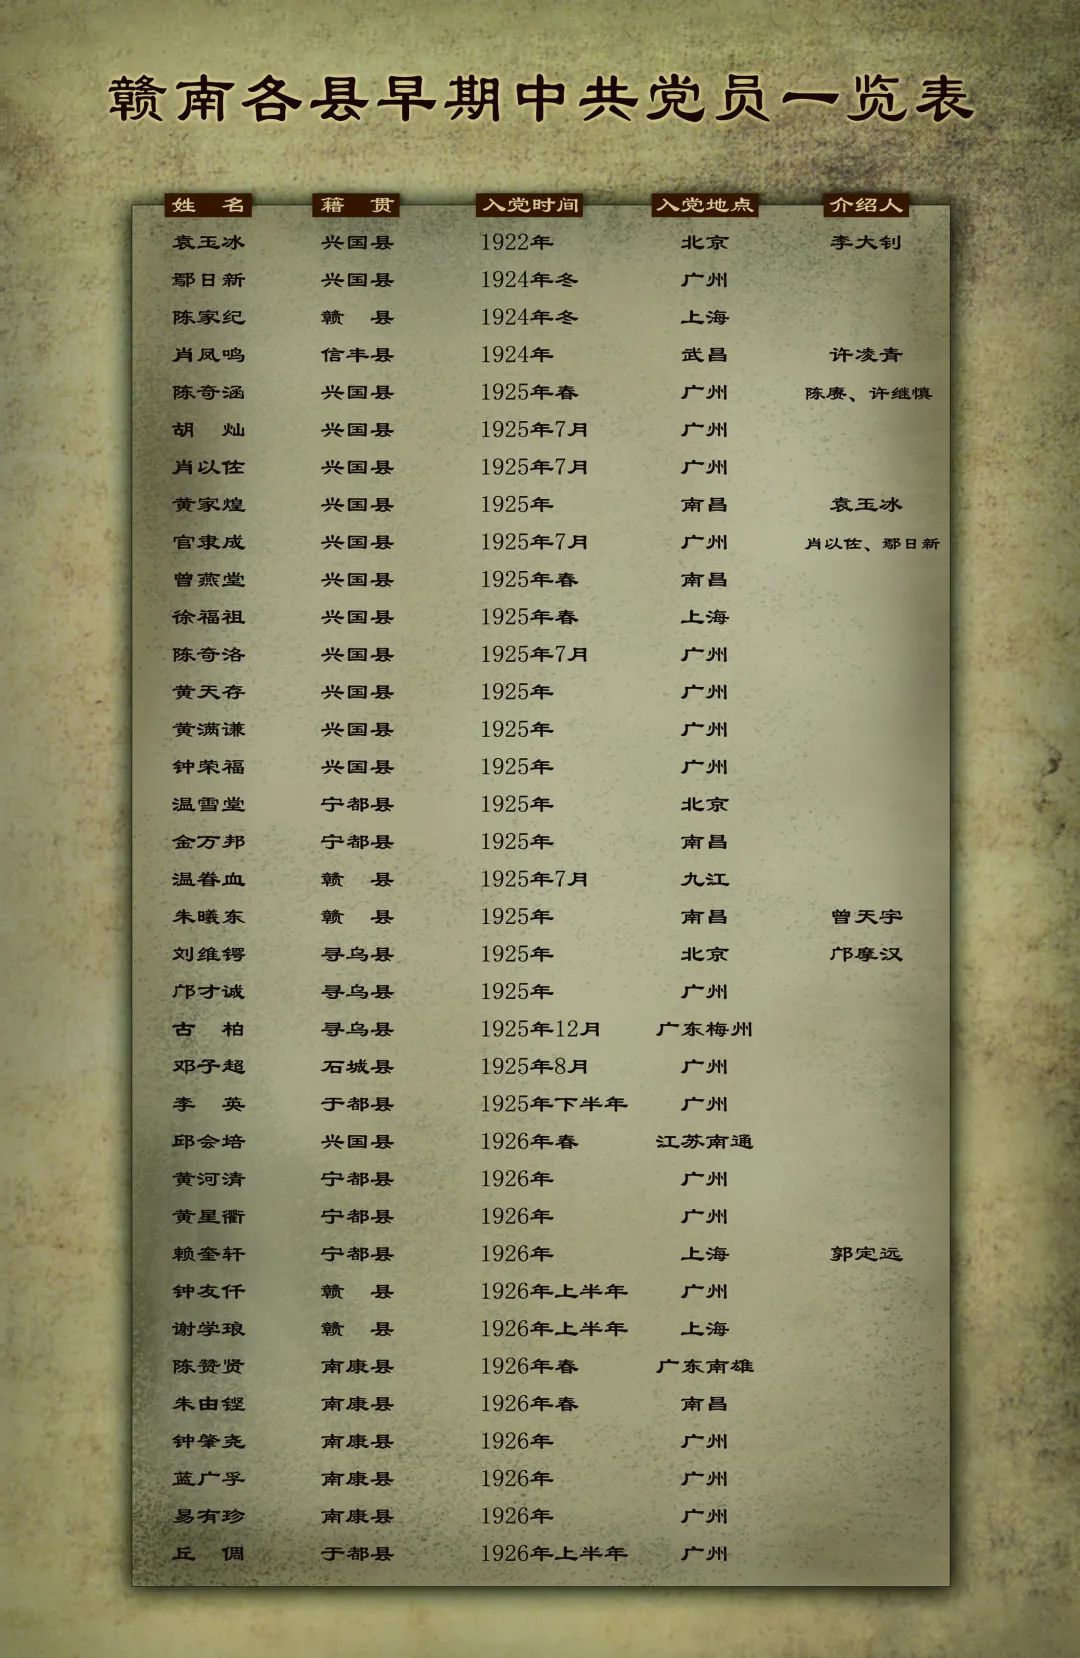 赣南各县早期中共党员一览表
姓 名 籍 贯 入党时间 入党地点 介绍人
袁玉冰 兴国县 1922年 北京 李大钊
鄢日新 兴国县 1924年冬 广州
陈家纪 赣 县 1924年冬 上海
肖凤鸣 信丰县 1924年 武昌 许凌青
陈奇涵 兴国县 1925年春 广州 陈赓、许继慎
胡 灿 兴国县 1925年7月 广州
肖以佐 兴国县 1925年7月 广州
黄家煌 兴国县 1925年 南昌 袁玉冰
官隶成 兴国县 1925年7月 广州 肖以佐、鄢日新
曾燕堂 兴国县 1925年春 南昌
徐福祖 兴国县 1925年春 上海
陈奇洛 兴国县 1925年7月 广州
黄天存 兴国县 1925年 广州
黄满谦 兴国县 1925年 广州
钟荣福 兴国县 1925年 广州
温雪堂 宁都县 1925年 北京
金万邦 宁都县 1925年 南昌
温眷血 赣 县 1925年7月 九江
朱曦东 赣 县 1925年 南昌 曾天宇
刘维锷 寻乌县 1925年 北京 邝摩汉
邝才诚 寻乌县 1925年 广州
古 柏 寻乌县 1925年12月 广东梅州
邓子超 石城县 1925年8月 广州
李 英 于都县 1925年下半年 广州
邱会培 兴国县 1926年春 江苏南通
黄河清 宁都县 1926年 广州
黄星衢 宁都县 1926年 广州
赖奎轩 宁都县 1926年 上海 郭定远
钟友仟 赣 县 1926年上半年 广州
谢学琅 赣 县 1926年上半年 上海
陈赞贤 南康县 1926年春 广东南雄
朱由铿 南康县 1926年春 南昌
钟肇尧 南康县 1926年 广州
蓝广孚 南康县 1926年 广州
易有珍 南康县 1926年 广州
丘 倜 于都县 1926年上半年 广州